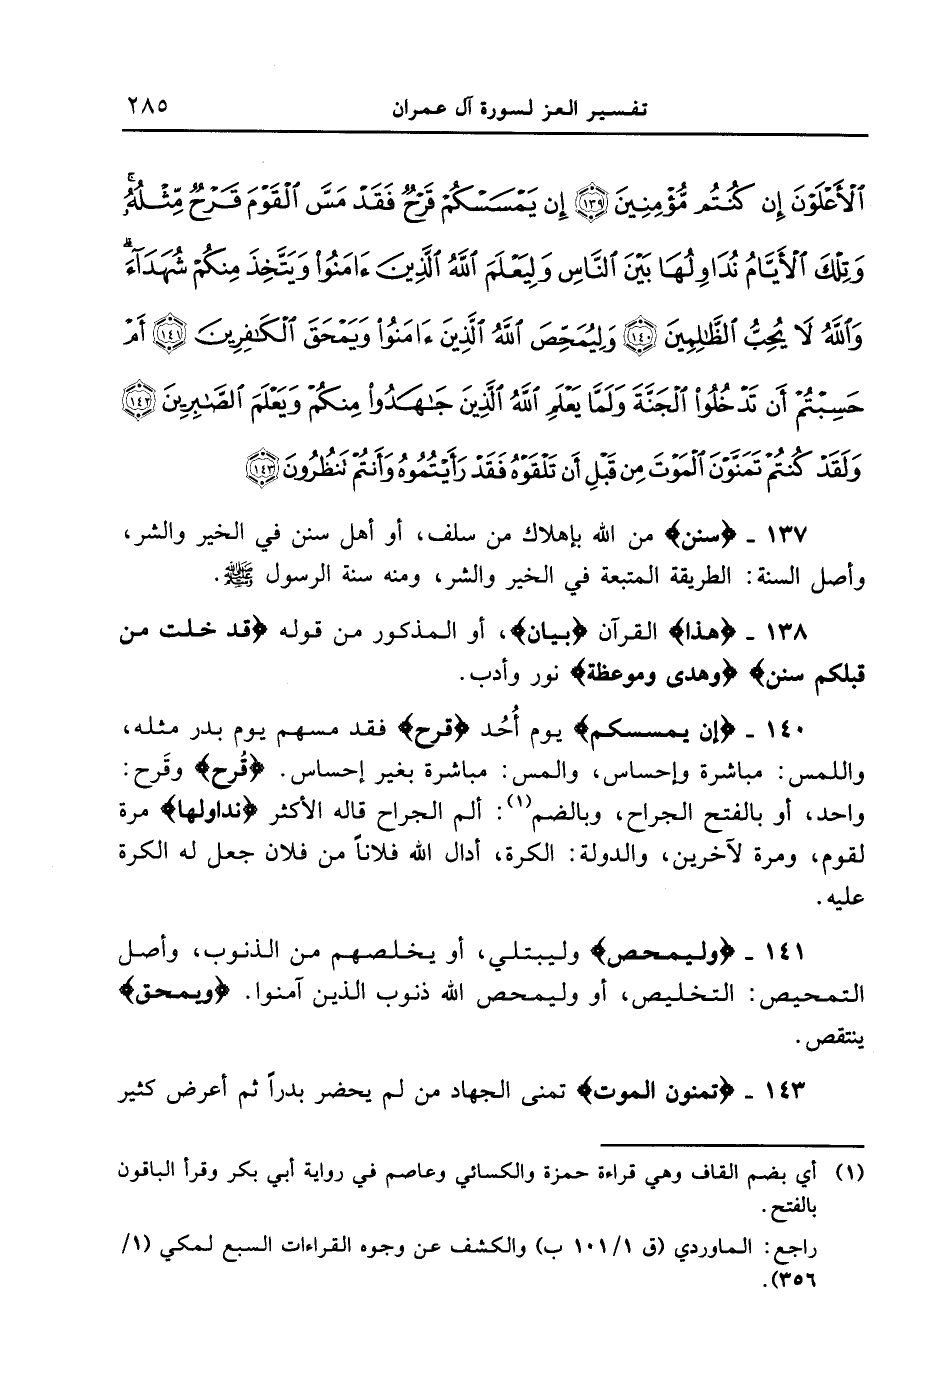 تفسير العز لسورة آل عمران ٢٨٥
ٱلۡأَعۡلَوۡنَ إِن كُنتُم مُّؤۡمِنِينَ ١٣٩ إِن يَمۡسَسۡكُمۡ قَرۡحٞ فَقَدۡ مَسَّ ٱلۡقَوۡمَ قَرۡحٞ مِّثۡلُهُۥۚ
وَتِلۡكَ ٱلۡأَيَّامُ نُدَاوِلُهَا بَيۡنَ ٱلنَّاسِ وَلِيَعۡلَمَ ٱللَّهُ ٱلَّذِينَ ءَامَنُواْ وَيَتَّخِذَ مِنكُمۡ شُهَدَآءَۗ
وَٱللَّهُ لَا يُحِبُّ ٱلظَّٰلِمِينَ ١٤٠ وَلِيُمَحِّصَ ٱللَّهُ ٱلَّذِينَ ءَامَنُواْ وَيَمۡحَقَ ٱلۡكَٰفِرِينَ ١٤١ أَمۡ
حَسِبۡتُمۡ أَن تَدۡخُلُواْ ٱلۡجَنَّةَ وَلَمَّا يَعۡلَمِ ٱللَّهُ ٱلَّذِينَ جَٰهَدُواْ مِنكُمۡ وَيَعۡلَمَ ٱلصَّٰبِرِينَ ١٤٢
وَلَقَدۡ كُنتُمۡ تَمَنَّوۡنَ ٱلۡمَوۡتَ مِن قَبۡلِ أَن تَلۡقَوۡهُ فَقَدۡ رَأَيۡتُمُوهُ وَأَنتُمۡ تَنظُرُونَ ١٤٣
١٣٧ ـ ﴿سنن﴾ من الله بإهلاك من سلف، أو أهل سنن في الخير والشر،
وأصل السنة: الطريقة المتبعة في الخير والشر، ومنه سنة الرسول ﷺ.
١٣٨ ـ ﴿هذا﴾ القرآن ﴿بيان﴾، أو المذكور من قوله ﴿قد خلت من
قبلكم سنن﴾ ﴿وهدى وموعظة﴾ نور وأدب.
١٤٠ ـ ﴿إن يمسسكم﴾ يوم أُحُد ﴿قرح﴾ فقد مسهم يوم بدر مثله،
واللمس: مباشرة وإحساس، والمس: مباشرة بغير إحساس. ﴿قُرح﴾ وقَرح:
واحد، أو بالفتح الجراح، وبالضم(١): ألم الجراح قاله الأكثر ﴿نداولها﴾ مرة
لقوم، ومرة لآخرين، والدولة: الكرة، أدال الله فلاناً من فلان جعل له الكرة
عليه.
١٤١ ـ ﴿وليمحص﴾ وليبتلي، أو يخلصهم من الذنوب، وأصل
التمحيص: التخليص، أو وليمحص الله ذنوب الذين آمنوا. ﴿ويمحق﴾
ينتقص.
١٤٣ ـ ﴿تمنون الموت﴾ تمنى الجهاد من لم يحضر بدراً ثم أعرض كثير
(١) أي بضم القاف وهي قراءة حمزة والكسائي وعاصم في رواية أبي بكر وقرأ الباقون
بالفتح.
راجع: الماوردي (ق ١/ ١٠١ ب) والكشف عن وجوه القراءات السبع لمكي (١/
٣٥٦).